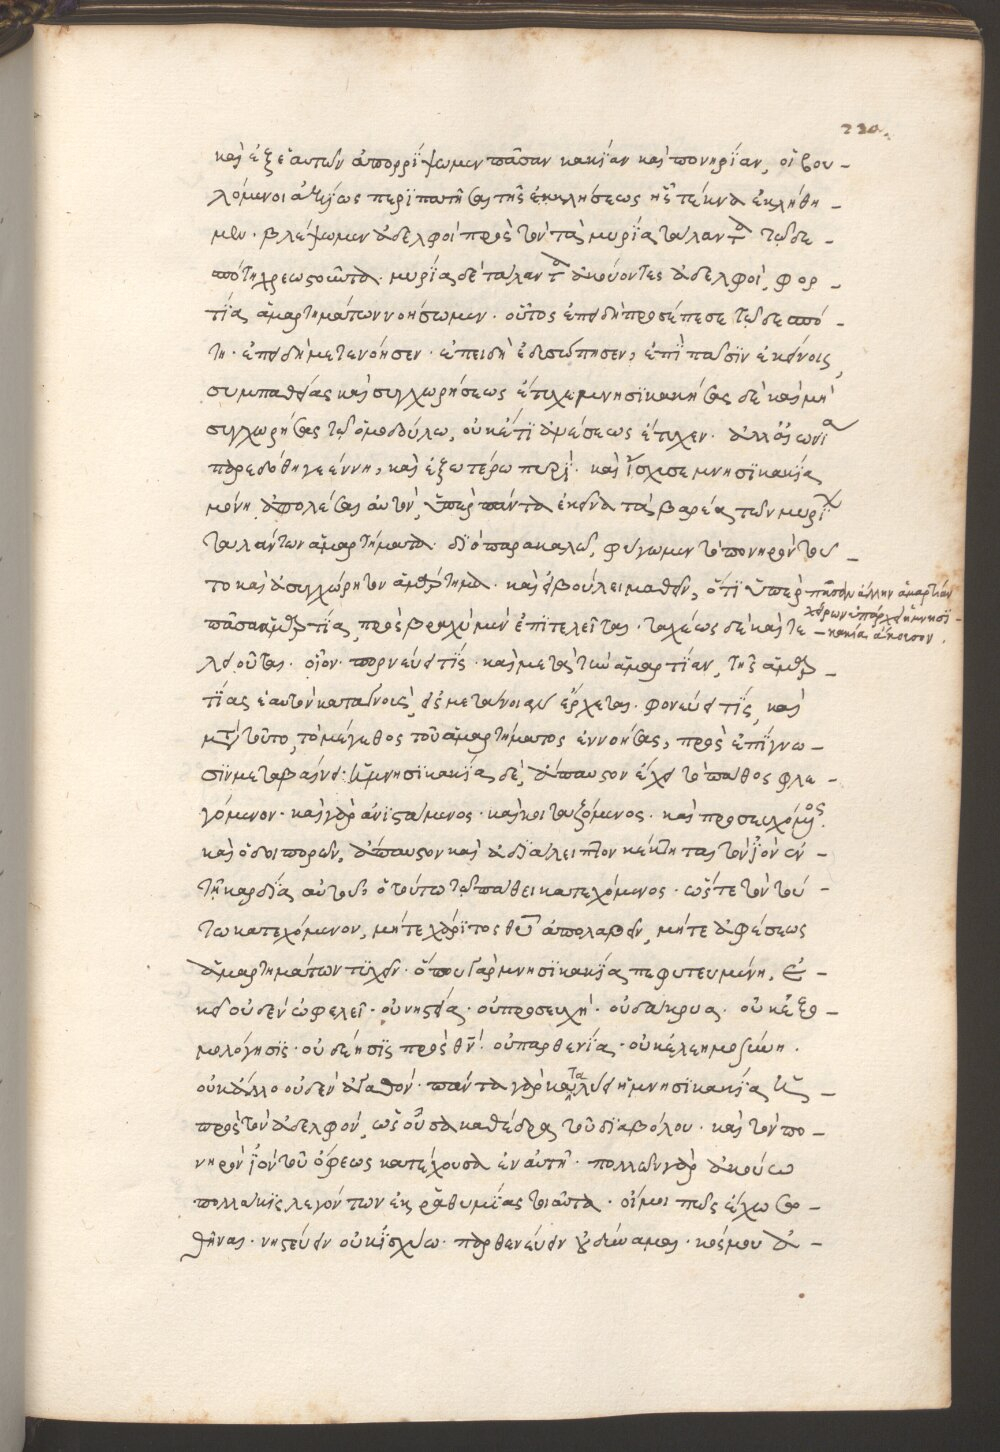 220.
καὶ ἐξ ἑαυτῶν ἀπορρίψωμεν πᾶσαν κακίαν καὶ πονηρίαν, οἱ βου-
λόμενοι ἀξίως περιπατῆσαι τῆς ἐκκλήσεως ἧς τέκνα ἐκλήθη-
μεν. βλέψωμεν ἀδελφοὶ πρὸς τὸν τὰς μυρίας ταλαντ τῷ δε-
σπότῃ χρεωστοῦντα. μυρίας δὲ ταλαντ ἀκούοντες ἀδελφοὶ, φορ-
τία ἁμαρτημάτων νοήσωμεν. οὗτος ἐπειδὴ προσέπεσε τῷ δεσπό-
τῃ. ἐπειδὴ μετενόησεν. ἐπειδὴ ἐδυσώπησεν, ἐπὶ πᾶσιν ἐκείνοις
συμπαθείας καὶ συγχωρήσεως ἔτυχε μνησικακήσας δὲ καὶ μὴ
συγχωρήσας τῷ ὁμοδούλῳ, οὐκέτι ἀφέσεως ἔτυχεν. ἀλλ'
παρεδόθη γεέννῃ, καὶ ἐξωτέρῳ πυρί. καὶ ἴσχυσε μνησικακία
μόνη ἀπολέσαι αὐτὸν, ὑπὲρ πάντα ἐκεῖνα τὰ βαρέα τῶν μυρί
ταλάντων ἁμαρτήματα. διὸ παρακαλῶ, φύγωμεν τὸ πονηρὸν τοῦ-
το καὶ ἀσυγχώρητον ἁμάρτημα. καὶ εἰ βούλει μαθεῖν, ὅτι ὑπὲρ πᾶσαν ἄλλην ἁμαρτίαν
χείρων ὑπάρχει ἡ μνησι-
κακία ἄκουσον.
πᾶσα ἁμαρτία, πρὸς βραχὺ μὲν ἐπιτελεῖται. ταχέως δὲ καὶ τε-
λειοῦται. οἷον. πορνεύει τίς. καὶ μετὰ τὴν ἁμαρτίαν, τῆς ἁμαρ-
τίας ἑαυτὸν κατανοεῖ, εἰς μετάνοιαν ἔρχεται. φονεύει τίς, καὶ
μετὰ τοῦτο, τὸ μέγεθος τοῦ ἁμαρτήματος ἐννοήσας, πρὸς ἐπίγνω-
σιν μεταβαίνει. ἡ μνησικακία δὲ, ἄπαυστον ἔχει τὸ πάθος φλε-
γόμενον. καὶ γὰρ ἀνιστάμενος. καὶ κοιταζόμενος. καὶ προσευχόμενος.
καὶ ὁδοιπορῶν, ἄπαυστον καὶ ἀδιάλειπτον κέκτηται τὸν ἰὸν ἐν
τῇ καρδίᾳ αὐτοῦ, ὁ τούτῳ τῷ πάθει κατεχόμενος. ὥστε τὸν τού-
τῳ κατεχόμενον, μήτε χάριτος θυ ἀπολαβεῖν, μήτε ἀφέσεως
ἁμαρτημάτων τυχεῖν. ὅπου γὰρ μνησικακία πεφυτευμένη, ἐ-
κεῖ οὐδὲν ὠφελεῖ. οὐ νηστεία. οὐ προσευχή. οὐ δάκρυα. οὐκ ἐξο-
μολόγησις. οὐ δέησις πρὸς θν. οὐ παρθενία. οὐκ ἐλεημοσύνη.
οὐκ ἄλλο οὐδὲν ἀγαθόν. πάντα γὰρ καταλύει ἡ μνησικακία ἡ
πρὸς τὸν ἀδελφόν, ὡς οὖσα καθέδρα τοῦ διαβόλου. καὶ τὸν πο-
νηρὸν ἰὸν τοῦ ὄφεως κατέχουσα ἐν αὐτῇ. πολλῶν γὰρ ἀκούω
πολλάκις λεγόντων ἐκ ῥαθυμίας τοιαῦτα. οἴμοι πῶς ἔχω σω-
θῆναι. νηστεύειν οὐκ ἰσχύω. παρθενεύειν οὐ δύναμαι. κόσμου ἀ-